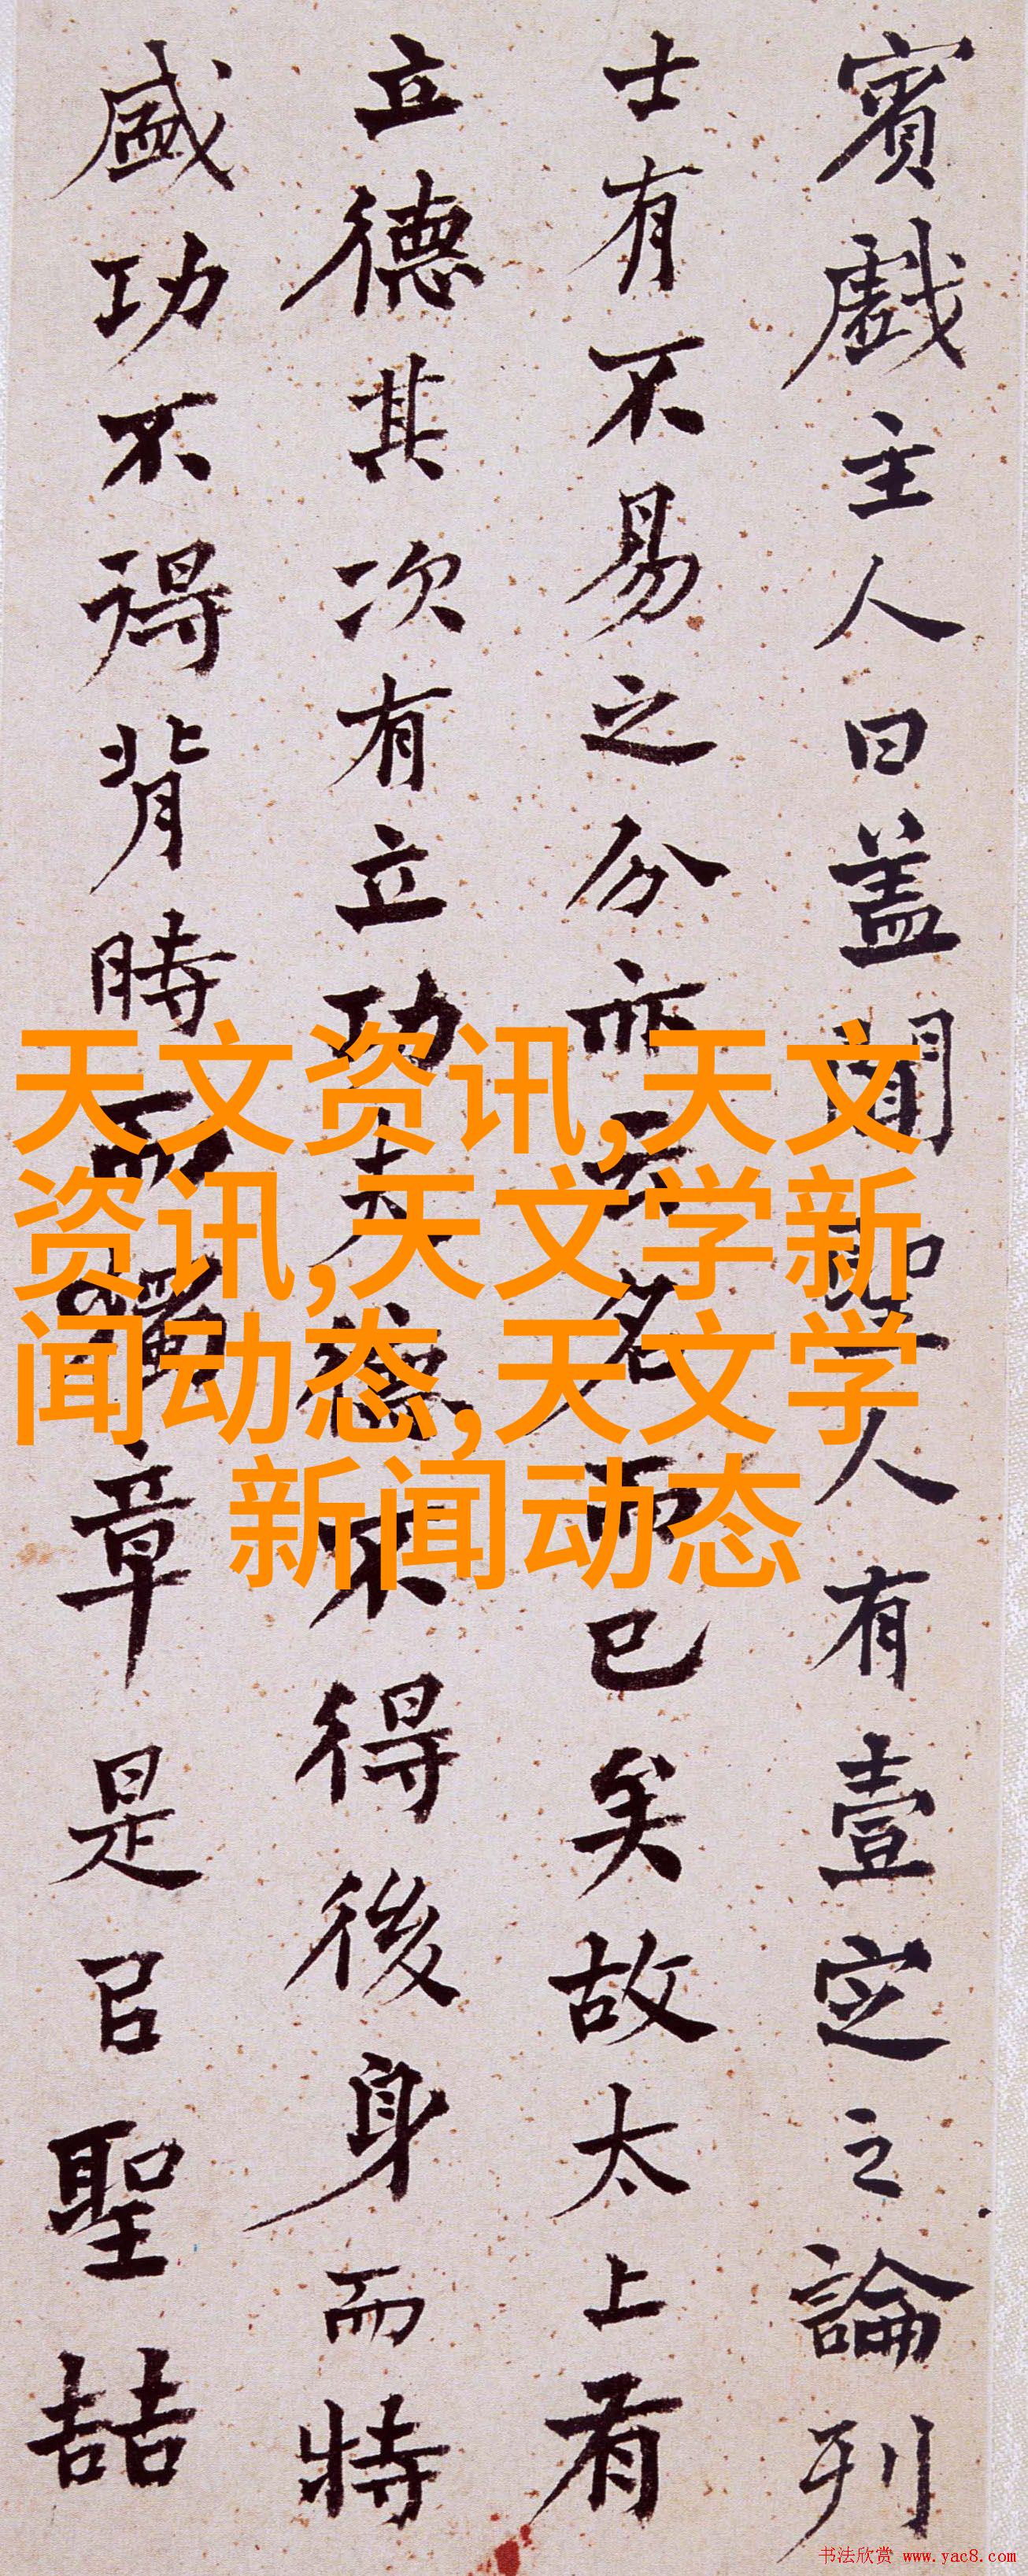 賓戲主人曰蓋聞聖人有壹定之論列
士有不易之分亦云名而已矣故太上有
立德其次有立功夫德不得後身而特
盛功不得背時而獨章是㠯聖喆
天文资讯,天文
资讯,天文学新
闻动态,天文学
新闻动态
书法欣赏 www.yac8.com